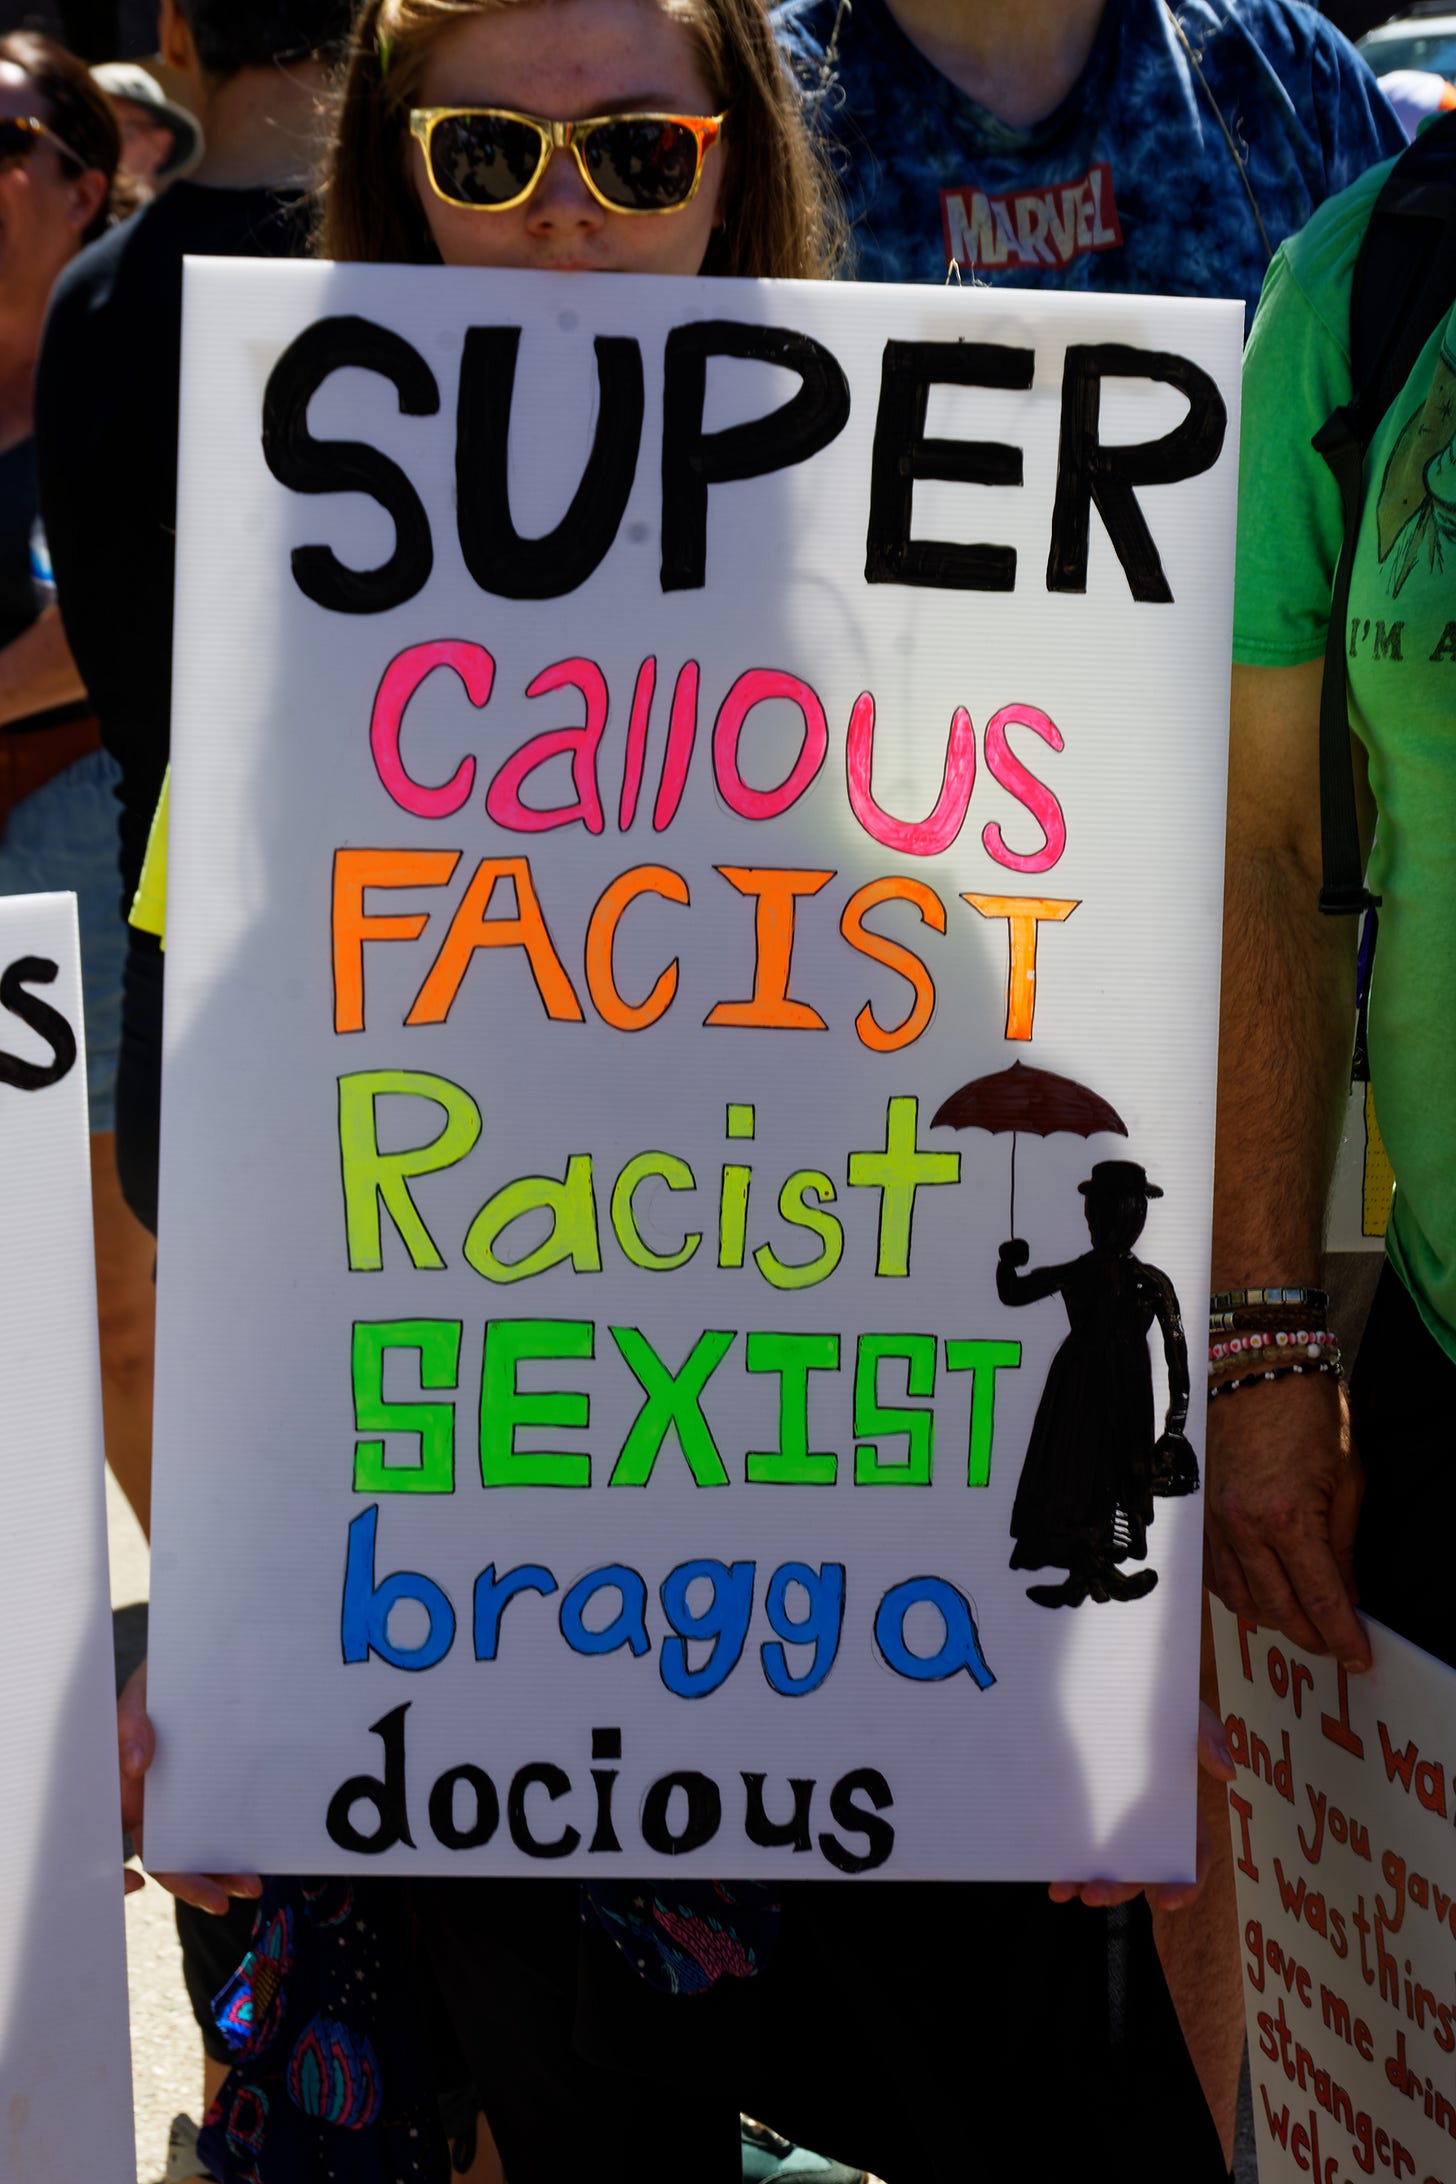 MARVEL
SUPER
callous
FACIST
Racist
SEXIST
bragga
docious
I'M A
S
For I was
and you gave
I was thirs
gave me drin
stranger
welc